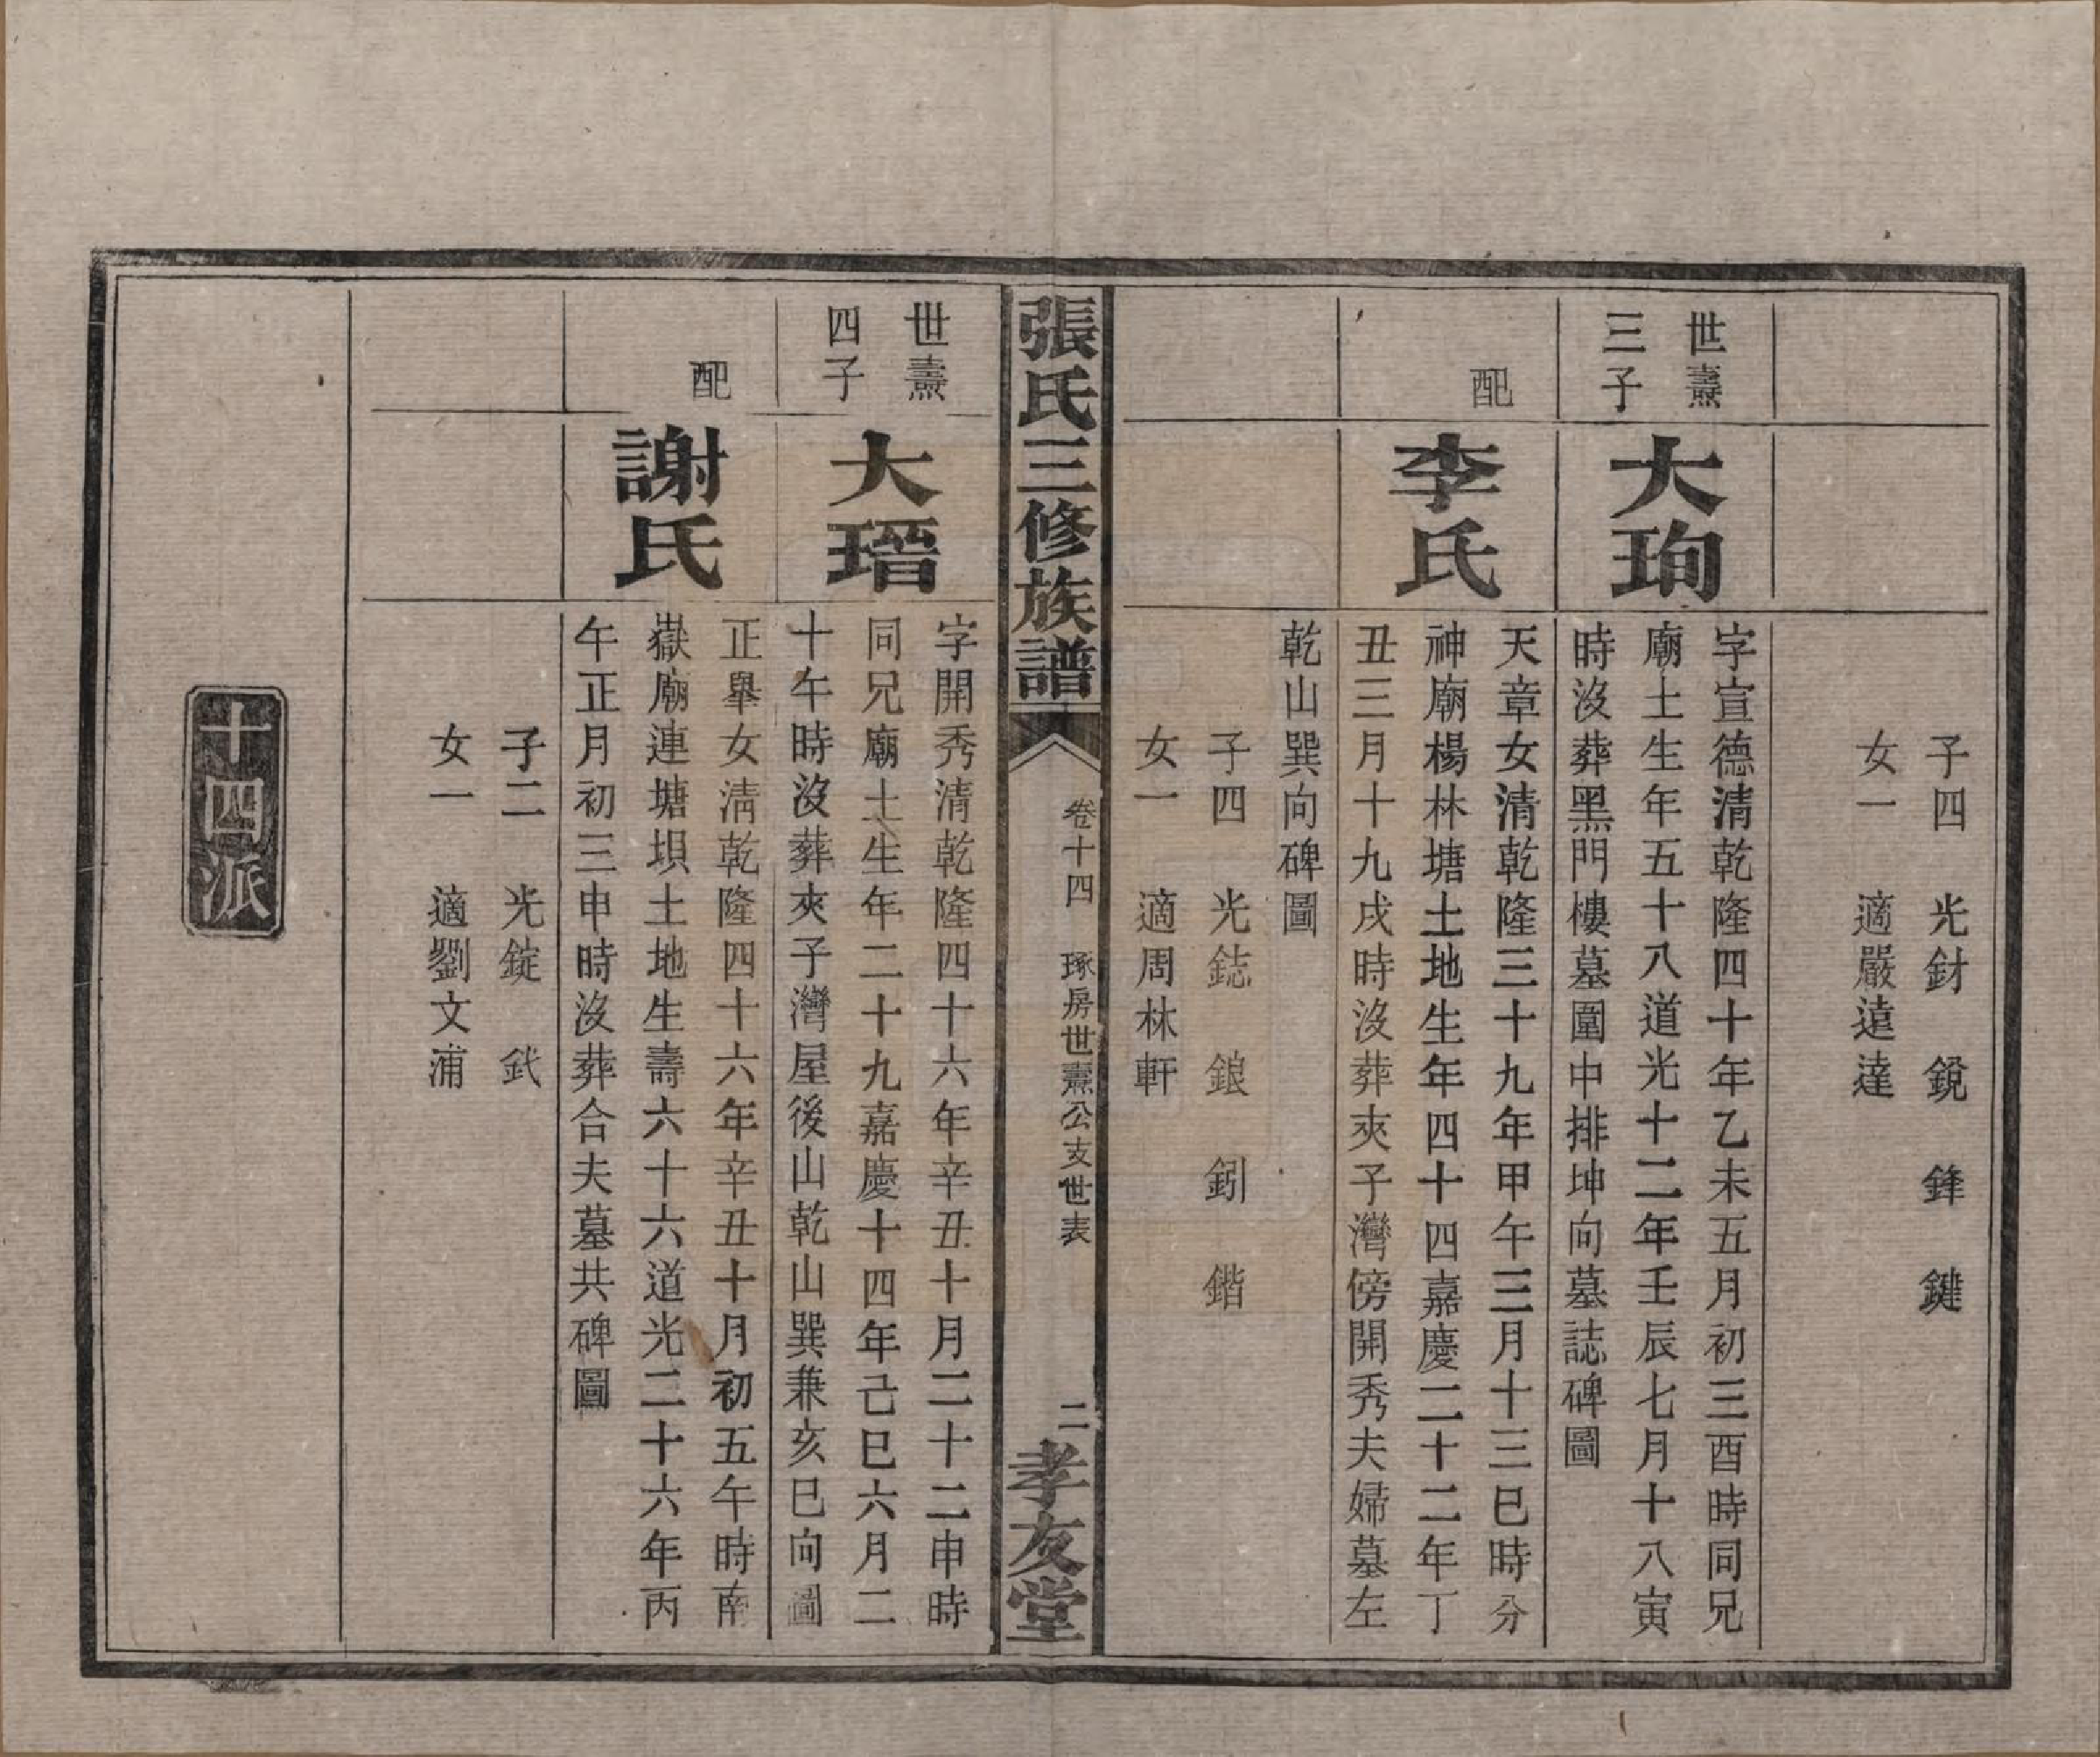 子四　光釮　鋭　鋒　鍵
女一　適嚴遠達
世燾
三子
大珣
字宣德清乾隆四十年乙未五月初三酉時同兄
廟土生年五十八道光十二年壬辰七月十八寅
時沒葬黑門樓墓圍中排坤向墓誌碑圖
配
李氏
天章女清乾隆三十九年甲午三月十三巳時分
神廟楊林塘土地生年四十四嘉慶二十二年丁
丑三月十九戌時沒葬夾子灣傍開秀夫婦墓左
乾山巽向碑圖
子四　光鋕　鋃　釰　鍇
女一　適周林軒
張氏三修族譜
卷十四　琢房世燾公支世表
二
孝友堂
世燾
四子
大瑨
字開秀清乾隆四十六年辛丑十月二十二申時
同兄廟土生年二十九嘉慶十四年己巳六月二
十午時沒葬夾子灣屋後山乾山巽兼亥巳向圖
配
謝氏
正舉女清乾隆四十六年辛丑十月初五午時南
嶽廟連塘垻土地生壽六十六道光二十六年丙
午正月初三申時沒葬合夫墓共碑圖
子二　光錠　釴
女一　適劉文浦
十四派